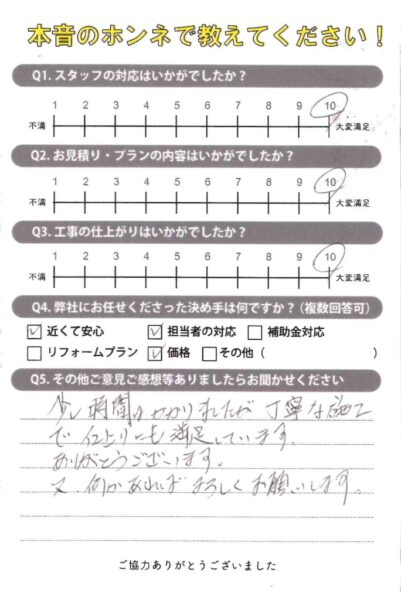 本音のホンネで教えてください！
Q1. スタッフの対応はいかがでしたか？
1 2 3 4 5 6 7 8 9 10
不満 大変満足
Q2. お見積り・プランの内容はいかがでしたか？
1 2 3 4 5 6 7 8 9 10
不満 大変満足
Q3. 工事の仕上がりはいかがでしたか？
1 2 3 4 5 6 7 8 9 10
不満 大変満足
Q4. 弊社にお任せくださった決め手は何ですか？（複数回答可）
☑ 近くて安心 ☑ 担当者の対応 □ 補助金対応
□ リフォームプラン ☑ 価格 □ その他（ ）
Q5. その他ご意見ご感想等ありましたらお聞かせください
少し時間はかかりましたが 丁寧な施工
で 仕上りにも満足しています。
ありがとうございます。
又、何かあれば よろしくお願いします。
ご協力ありがとうございました